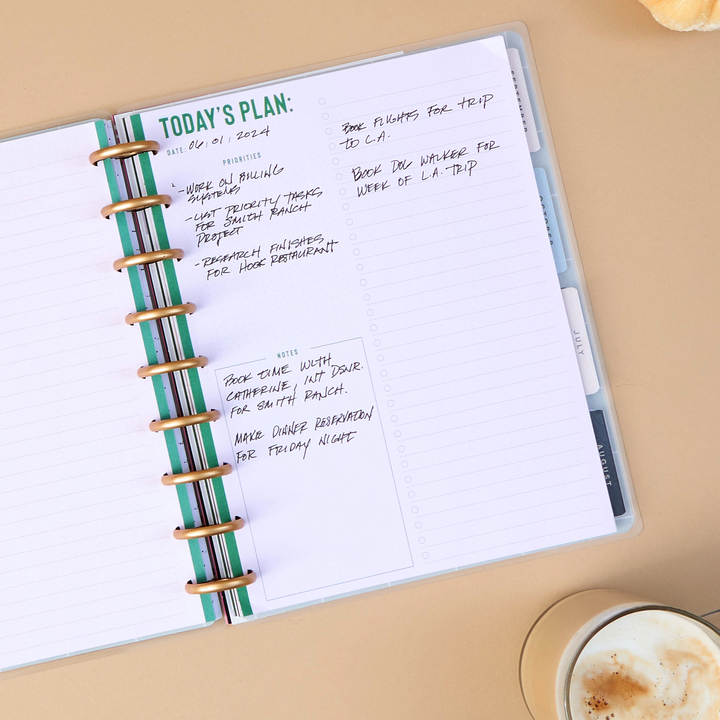 TODAY'S PLAN:
DATE: 06.01.2024
PRIORITIES
-WORK ON BILLING
SYSTEMS
-LIST PRIORITY TASKS
FOR SMITH RANCH
PROJECT
-RESEARCH FINISHES
FOR HOOK RESTAURANT
NOTES
BOOK TIME WITH
CATHERINE, INT DSNR.
FOR SMITH RANCH.
MAKE DINNER RESERVATION
FOR FRIDAY NIGHT
BOOK FLIGHTS FOR TRIP
TO L.A.
BOOK DOG WALKER FOR
WEEK OF L.A. TRIP
SEPTEMBER
OCTOBER
JULY
AUGUST